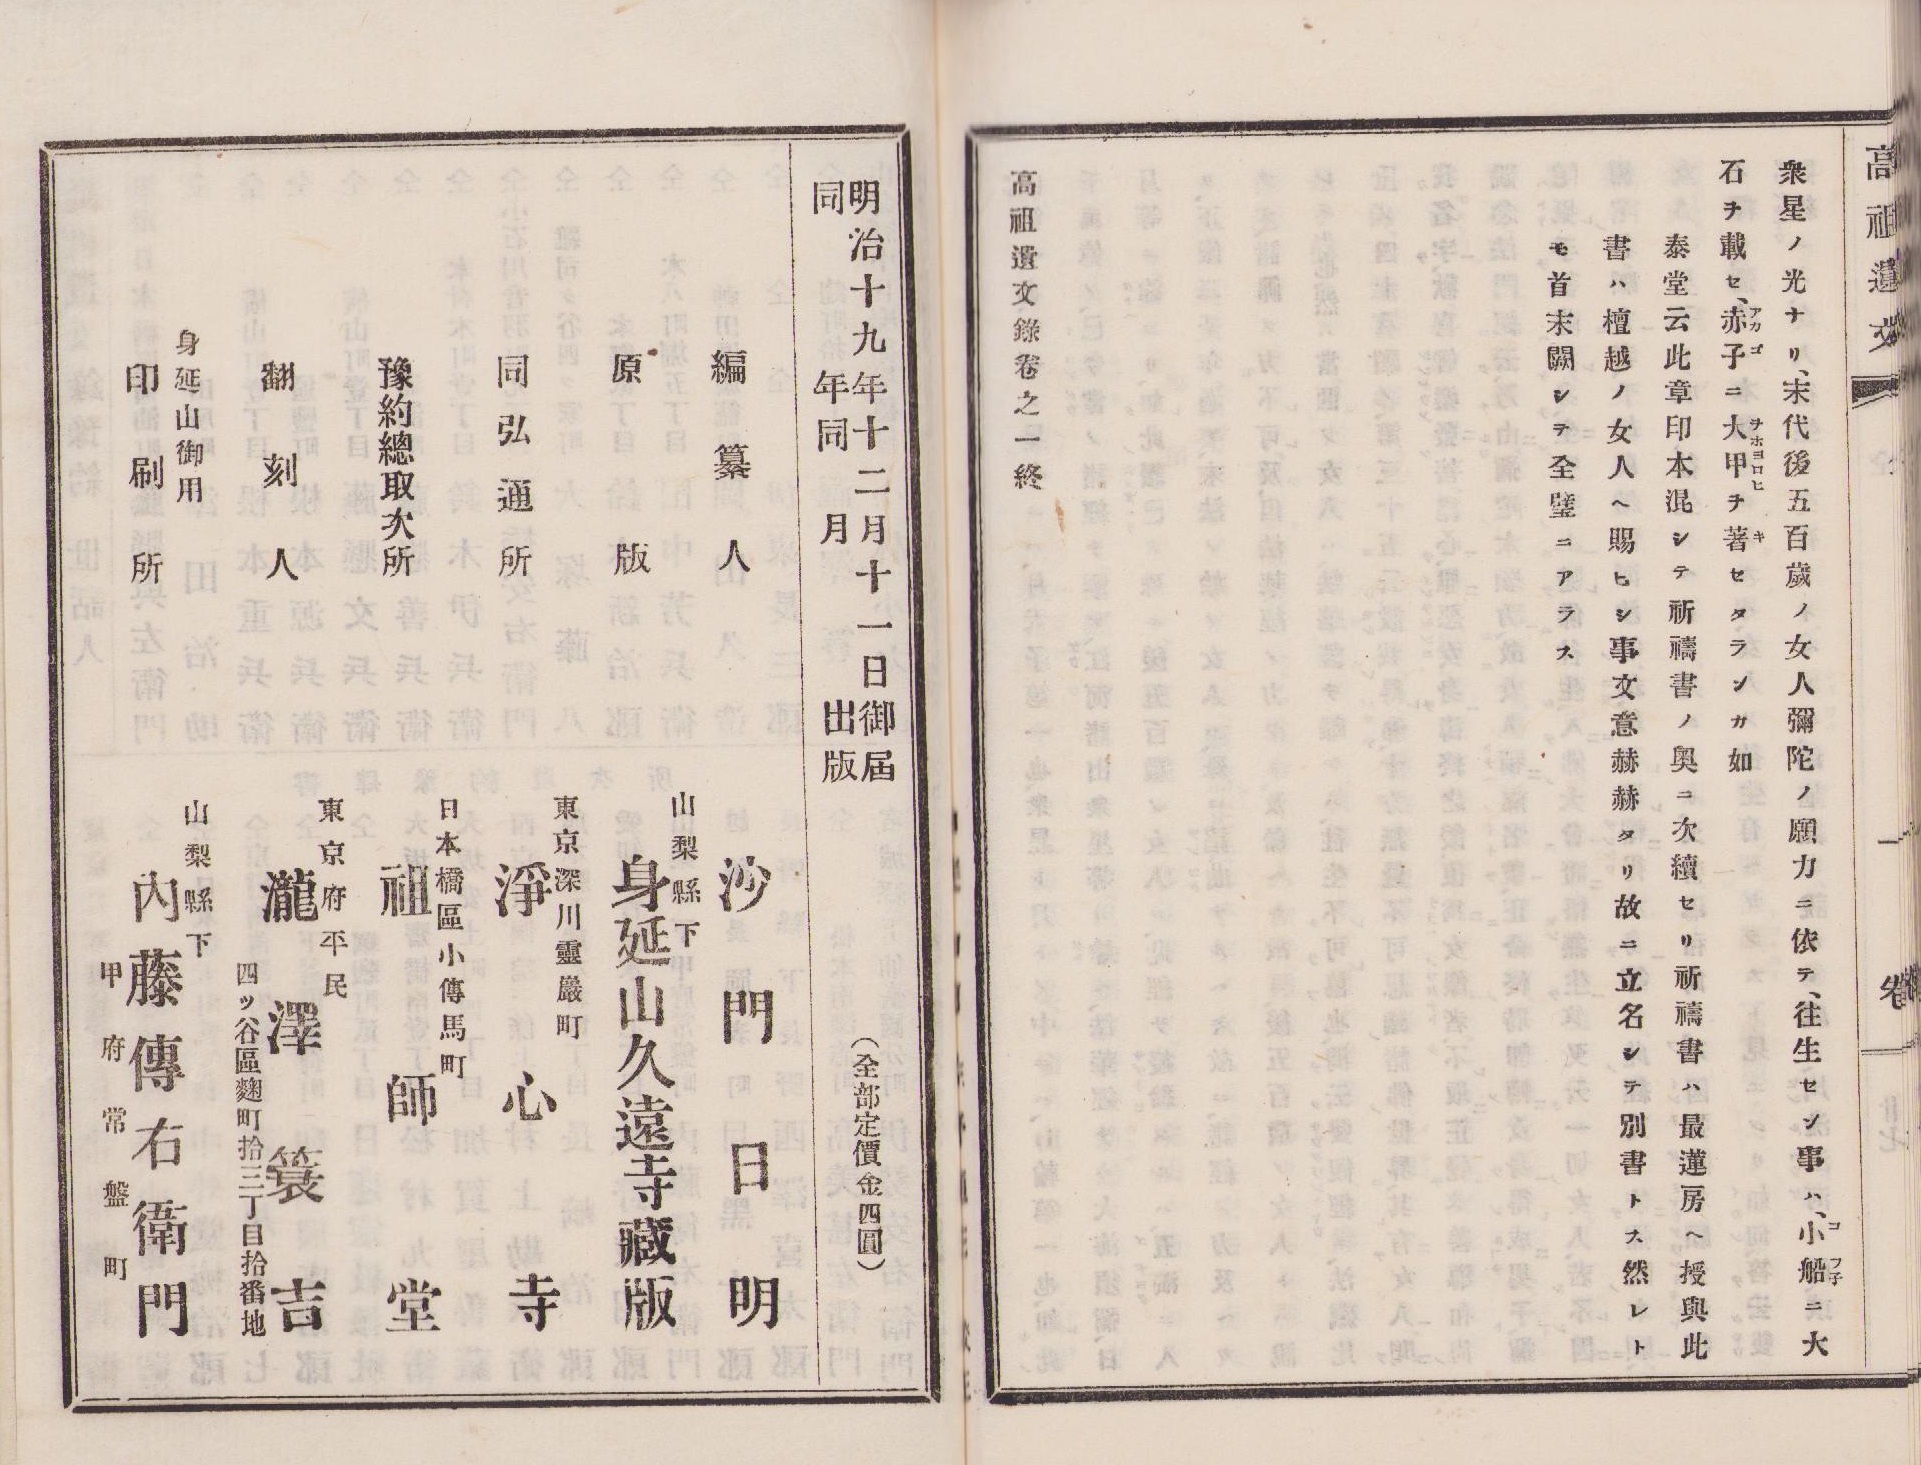 高祖遺文
一
卷
衆星ノ光ナリ、末代後五百歲ノ女人彌陀ノ願力ニ依テ、往生セン事ハ、小船ニ大
石ヲ載セ、赤子ニ大甲ヲ著セタランカ如
泰堂云此章印本混シテ祈禱書ノ奧ニ次續セリ祈禱書ハ最蓮房ヘ授與此
書ハ檀越ノ女人ヘ賜ヒシ事文意赫赫タリ故ニ立名シテ別書トス然レト
モ首末闕シテ全璧ニアラス
高祖遺文錄卷之一終
明治十九年十二月十一日御届
同年同月出版
(全部定價金四圓)
編纂人
沙門日明
原版
山梨縣下
身延山久遠寺藏版
同弘通所
東京深川靈巖町
淨心寺
豫約總取次所
日本橋區小傳馬町
祖師堂
翻刻人
東京府平民
瀧澤簑吉
四ツ谷區麴町拾三丁目拾番地
身延山御用
印刷所
山梨縣下
內藤傳右衛門
甲府常盤町